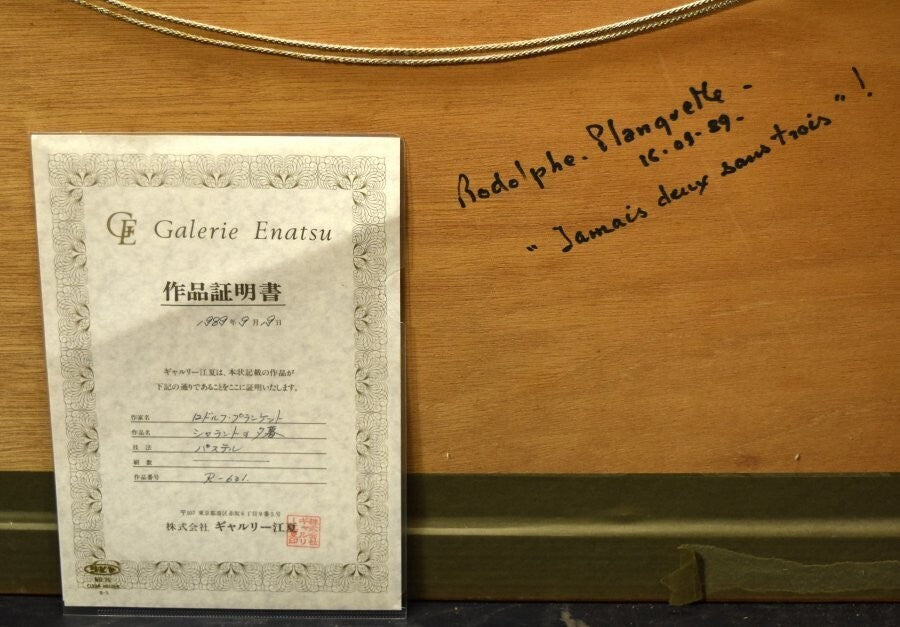 Rodolphe. Planquette -
16-09-89-
" Jamais deux sans trois " !
GE Galerie Enatsu
作品証明書
1989年9月19日
ギャルリー江夏は、本状記載の作品が
下記の通りであることをここに証明いたします。
作家名 ロドルフ・プランケット
作品名 シャラントの夕暮
技法 パステル
刷数
作品番号 R-621
〒107 東京都港区赤坂6丁目9番5号
株式会社 ギャルリー江夏
株式会社
CLEAR HOLDER